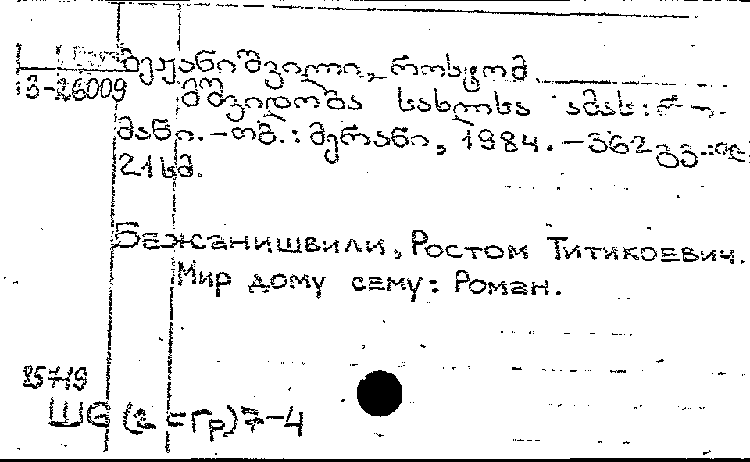 ბეჟანიშვილი, როსტომ
3-26009
მშვიდობა სახლსა ამას: რო-
მანი. - თბ.: მერანი, 1984. - 362 გვ.:
21 სმ.
Бежанишвили, Ростом Титикоевич.
Мир дому сему: Роман.
85719
Ш6 (2 = Гр) 7-4